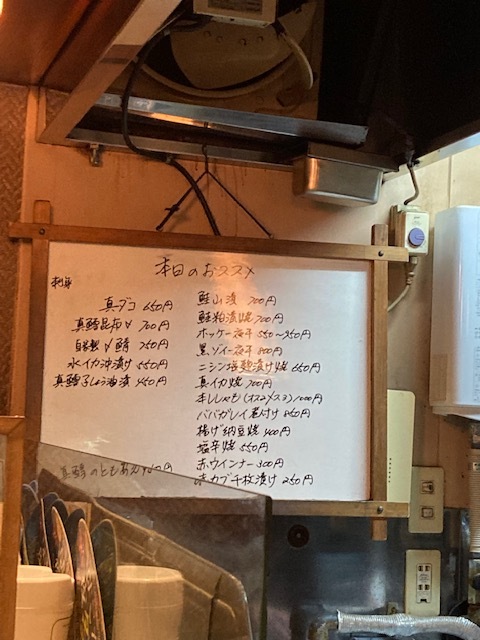 本日のおススメ
刺身
真ダコ 650円
真鱈昆布〆 700円
自家製〆鯖 750円
水イカ沖漬 550円
真鱈子しょう油漬 450円
真鱈のともあえ
鮭山漬 700円
鮭粕漬焼 700円
ホッケ一夜干 550〜950円
黒ゾイ一夜干 800円
ニシン塩麹漬け焼 650円
真イカ焼 700円
本ししゃも(オスメス3) 1000円
ババガレイ煮付け 850円
揚げ納豆焼 400円
塩辛焼 550円
赤ウインナー 300円
赤カブ千枚漬け 250円